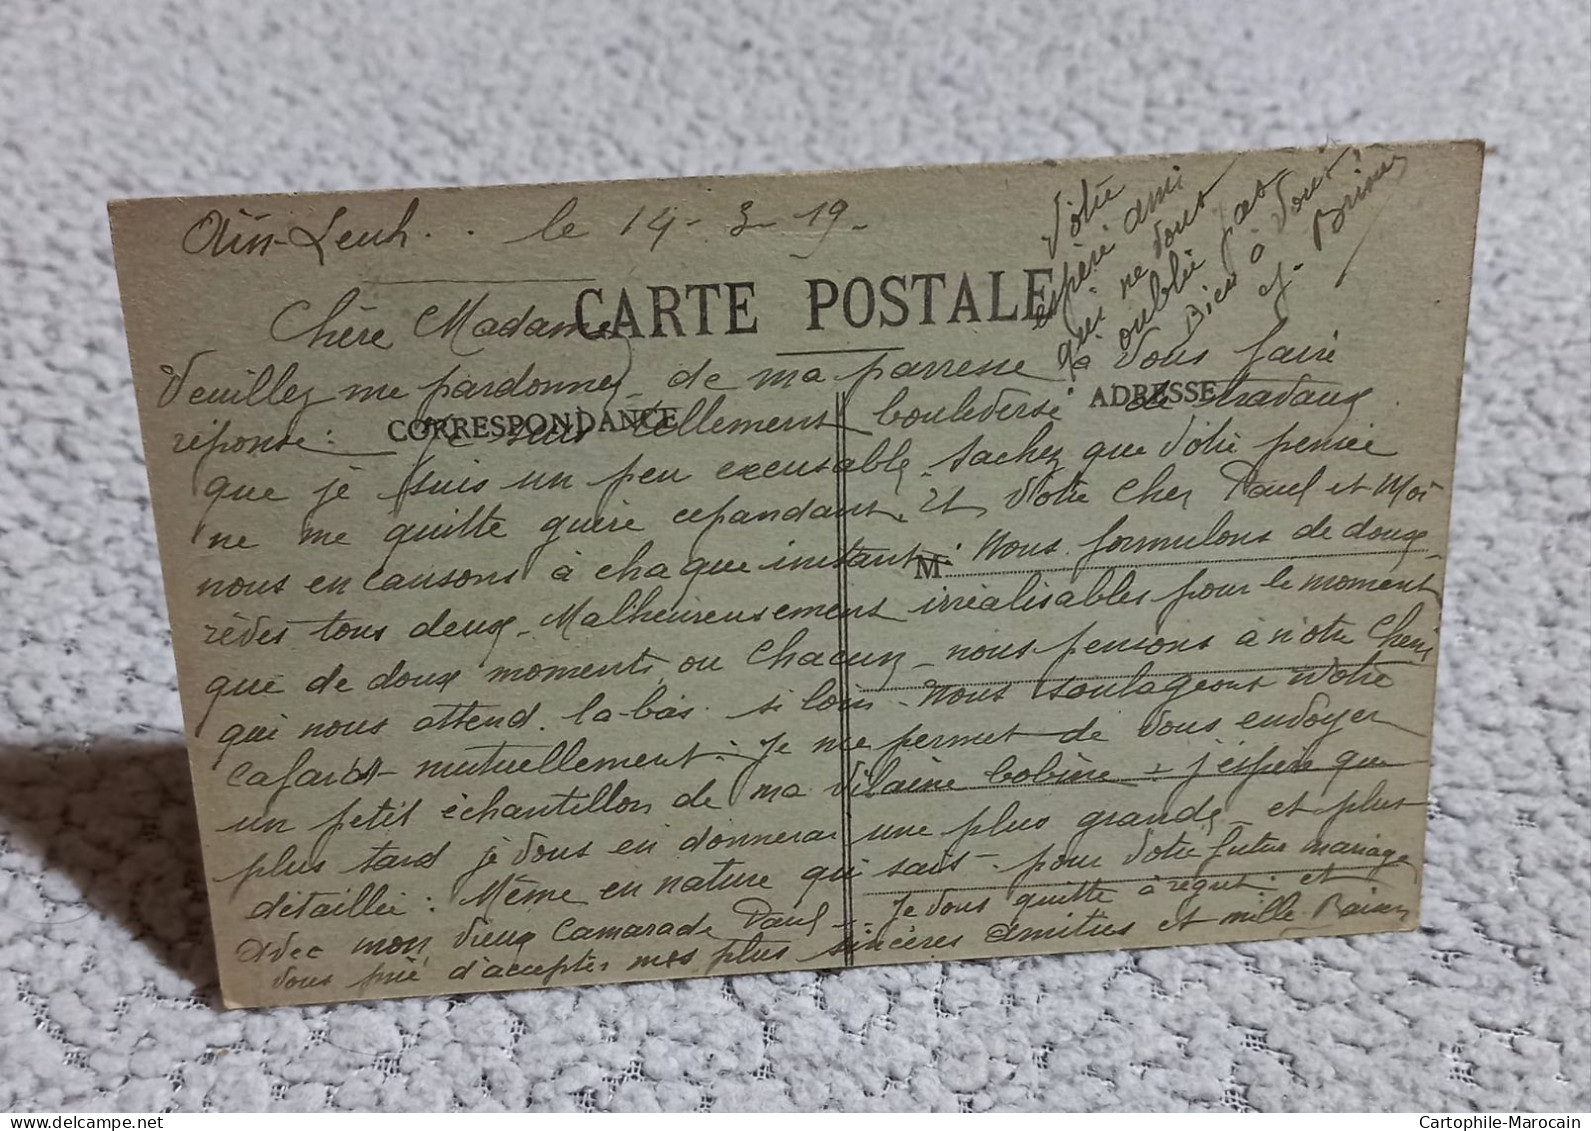 Aïn-Leuh . . le 14 - 3 - 19 -
Chère Madame
CARTE POSTALE
Veuillez me pardonner de ma parresse à Vous faire
CORRESPONDANCE
ADRESSE
réponse : Je suis tellement bouleversé de travaux
que je suis un peu excusable, sachez que Vôtre pensée
ne me quitte guère cependant, et Vôtre Cher Paul et Moi
nous en causons à chaque instant : Nous formulons de doux
M
rêves tous deux - Malheureusement irréalisables pour le moment
que de doux moments ou Chacun - nous pensons à nôtre Chérie
qui nous attend la-bas si loin - Nous soulageons Nôtre
Cafard - mutuellement : Je me permet de Vous envoyer
un petit échantillon de ma Vilaine bobine - j'espère que
plus tard je Vous en donnerai une plus grande et plus
détaillée : Même en nature qui sait - pour Vôtre futur mariage
avec mon Vieux Camarade Paul - Je Vous quitte à regret : et
Vous prie d'accepter mes plus sincères Amitiés et mille Baisers
Vôtre
espéré ami
qui ne Vous
oublie pas
Bien à Vous